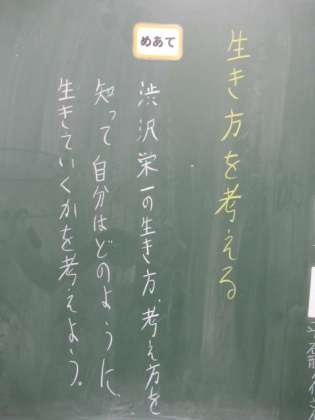 生き方を考える
めあて
渋沢栄一の生き方、考え方を
知って自分はどのように、
生きていくかを考えよう。